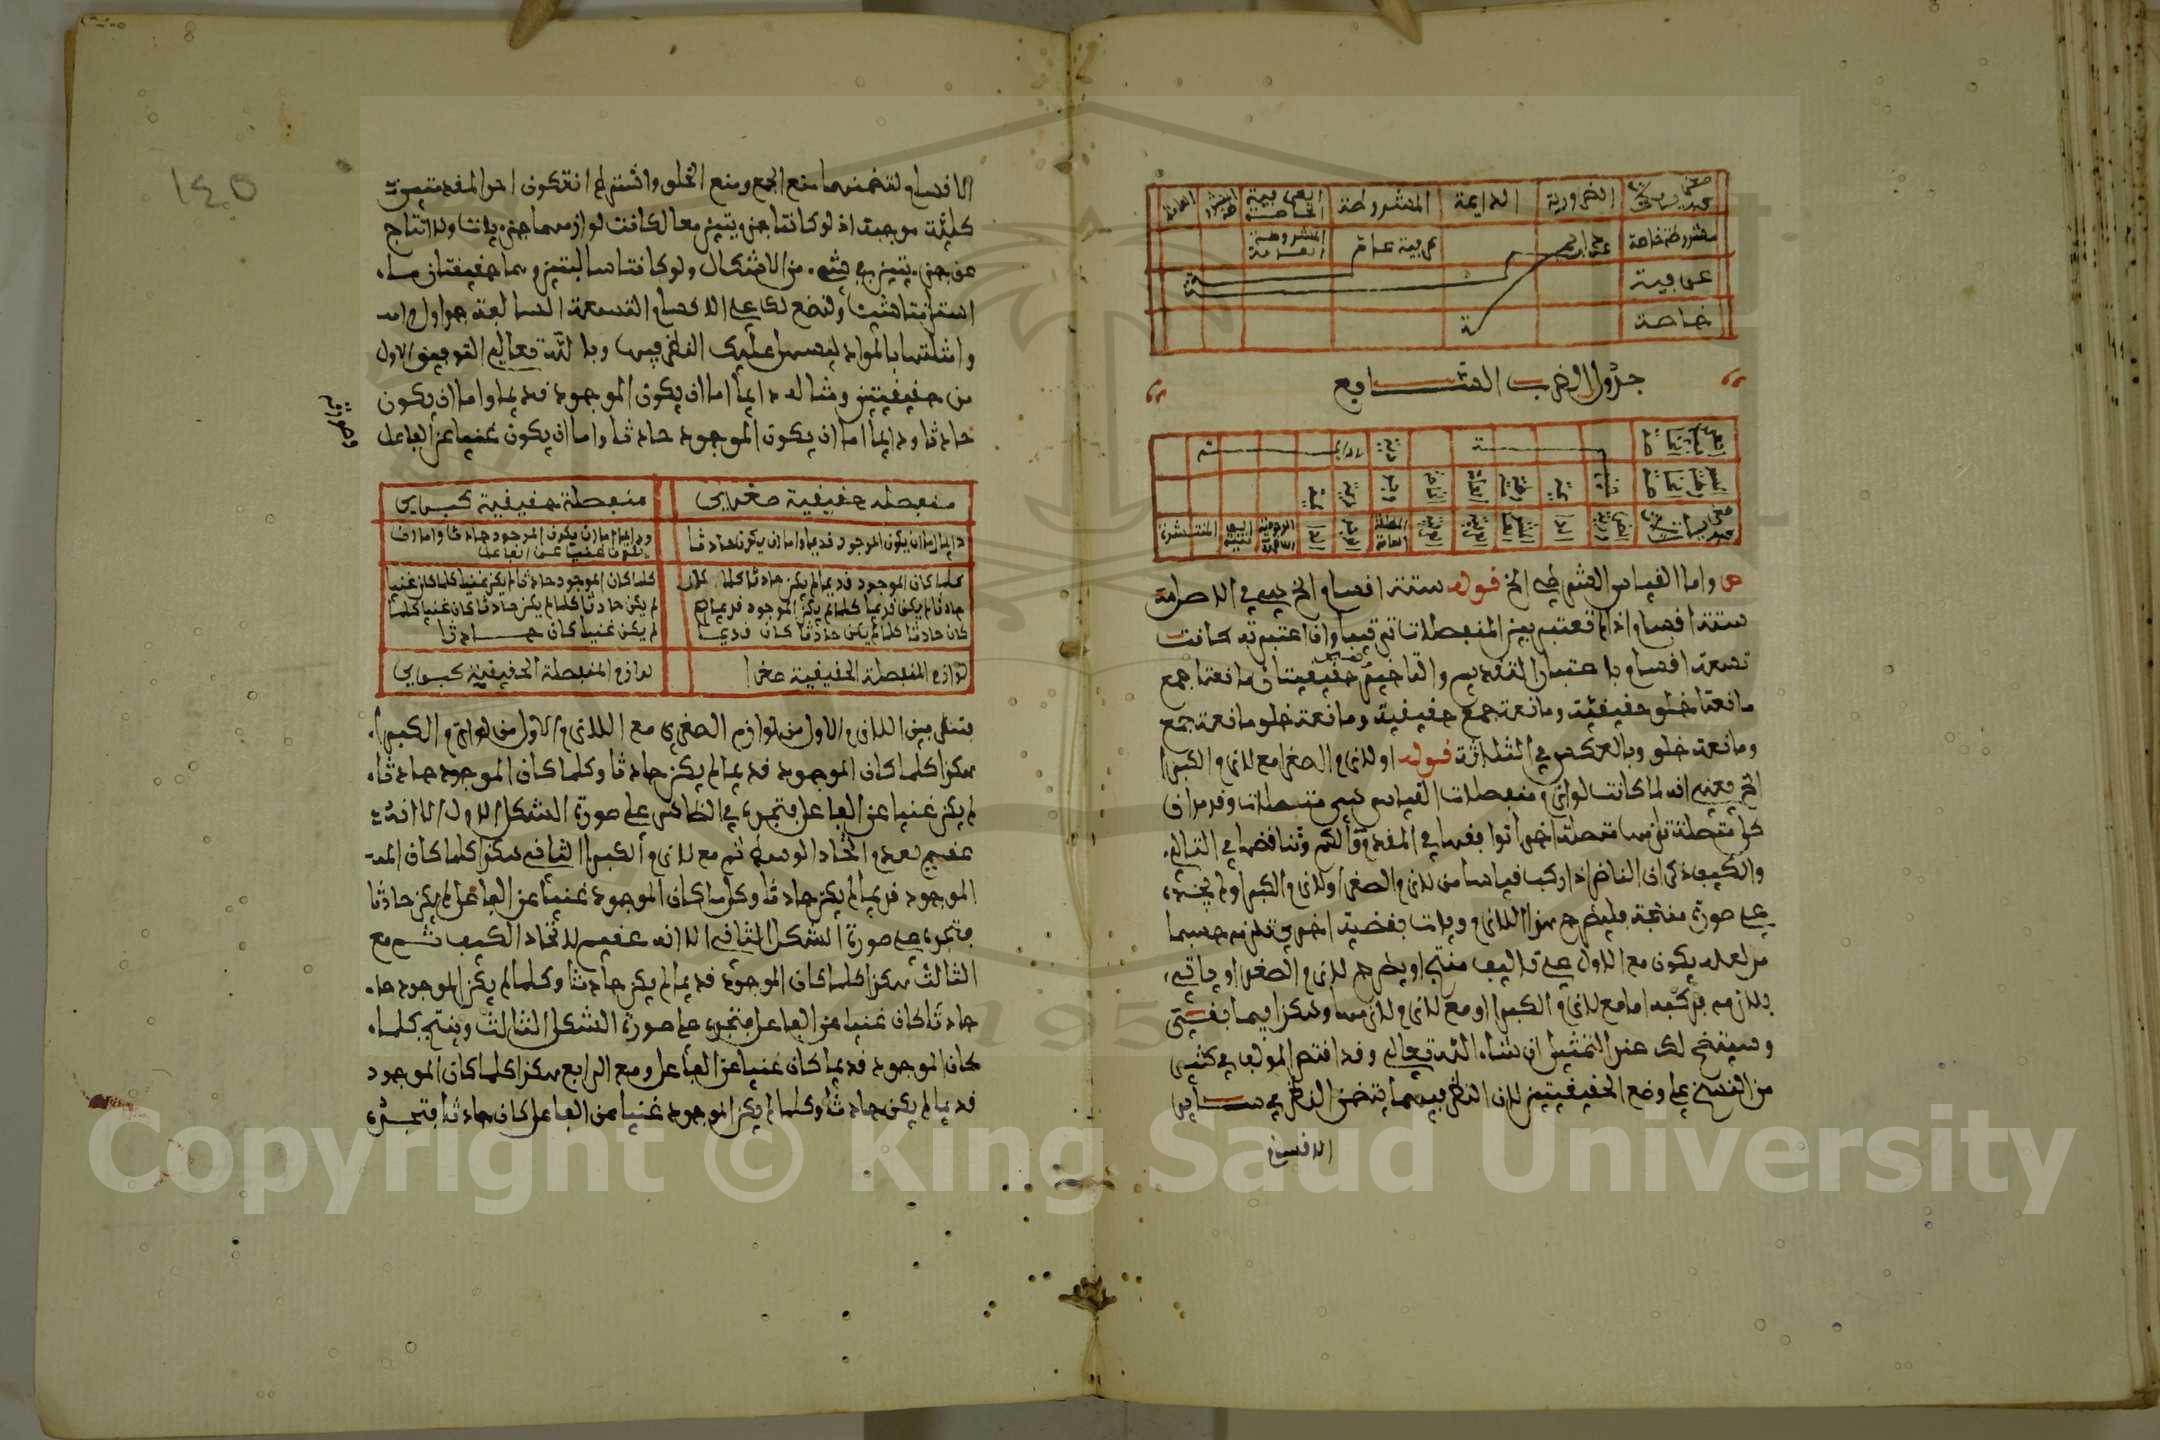 الضرورية الدايمة المشروطة
مشروطة خاصة
عرفية عامة
المشروطة العامة
عرفية
خاصة
جدول الضرب السابع
المطلقة العامة
المنتشرة
ص واما القياس الشرطي الخ قوله ستة اقسام الخ هي في الاصل
ستة اقسام اذا لم تعتبر بين المنفصلات ترتيبا وان اعتبرته كانت
تسعة اقسام باعتبار التقديم والتاخير حقيقيتان مانعتا جمع
مانعتا خلو حقيقية ومانعة جمع حقيقية ومانعة خلو مانعة جمع
ومانعة خلو وبالعكس في الثلاثة قوله او لازم الصغرا مع لازم الكبرا
الخ يعني انه لما كانت لوازم منفصلات القياس هي متصلات وقد مر ان
كل متصلة تلزمها متصلة اخرى توافقها في المقدم والكم وتناقضها في التالي
والكيف ذكر ان الناظر اذا ركب قياسا من لازم الصغرا ولازم الكبرا ولم يجده
على صورة منتجة فليطرح هذا اللازم ويات بقضية اخرى تلزمه حسبما
مر لعله يكون مع الاول على تاليف منتج او يطرح لازم الصغرا وياتي
بلازمه يركبه اما مع لازم الكبرا او مع لازم لازمها وهكذا فيما بقي
وسيتضح لك عند التمثيل ان شاء الله تعالى وقد اقتصر المولف في كثير
من النسخ على وضع الحقيقيتين لان النظر فيهما يتضمن النظر في ساير
الاقسام
١٤٥
الاقسام لتضمنهما منع الجمع ومنع الخلو واشترط ان تكون احدا المقدمتين
كلية موجبة اذ لو كانتا جزءيتين معا لكانت لوازمهما جزءيات ولا انتاج
عن جزءيتين في شيء من الاشكال ولو كانتا سالبتين وهما حقيقتان ما
استلزمتا شيئا ولنضع لك على الاقسام التسعة السالفة جداول
وامثلتها بالمواد ليسهل عليك النظر فيها وبالله تعالى التوفيق الاول
من حقيقيتين ومثاله دايما اما ان يكون الموجود قديما واما ان يكون
حادثا ودايما اما ان يكون الموجود حادثا واما ان يكون غنيا عن الفاعل
وصورته
منفصلة حقيقية صغرى
منفصلة حقيقية كبرى
دايما اما ان يكون الموجود قديما واما ان يكون حادثا
ودايما اما ان يكون الموجود حادثا واما ان
يكون غنيا عن الفاعل
كلما كان الموجود قديما لم يكن حادثا كلما كان
حادثا لم يكن قديما كلما لم يكن الموجود قديما
كان حادثا كلما لم يكن حادثا كان قديما
كلما كان الموجود حادثا لم يكن غنيا كلما كان غنيا
لم يكن حادثا كلما لم يكن حادثا كان غنيا كلما
لم يكن غنيا كان حادثا
لوازم المنفصلة الحقيقية صغرا
لوازم المنفصلة الحقيقية كبرى
فتنظر بين اللازم الاول من لوازم الصغرى مع اللازم الاول من لوازم الكبرا
هكذا كلما كان الموجود قديما لم يكن حادثا وكلما كان الموجود حادثا
لم يكن غنيا عن الفاعل فتجده في الظاهر على صورة الشكل الاول الا انه
عقيم لعدم اتحاد الوسط ثم مع لازم الكبرا الثاني هكذا كلما كان
الموجود قديما لم يكن حادثا وكلما كان الموجود غنيا عن الفاعل لم يكن حادثا
فتجده على صورة الشكل الثاني الا انه عقيم لاتحاد الكيف ثم مع
الثالث هكذا كلما كان الموجود قديما لم يكن حادثا وكلما لم يكن الموجود
حادثا كان غنيا عن الفاعل فتجده على صورة الشكل الثالث وينتج كلما
كان الموجود قديما كان غنيا عن الفاعل ومع الرابع هكذا كلما كان الموجود
قديما لم يكن حادثا وكلما لم يكن الموجود غنيا عن الفاعل كان حادثا فتجده
Copyright © King Saud University